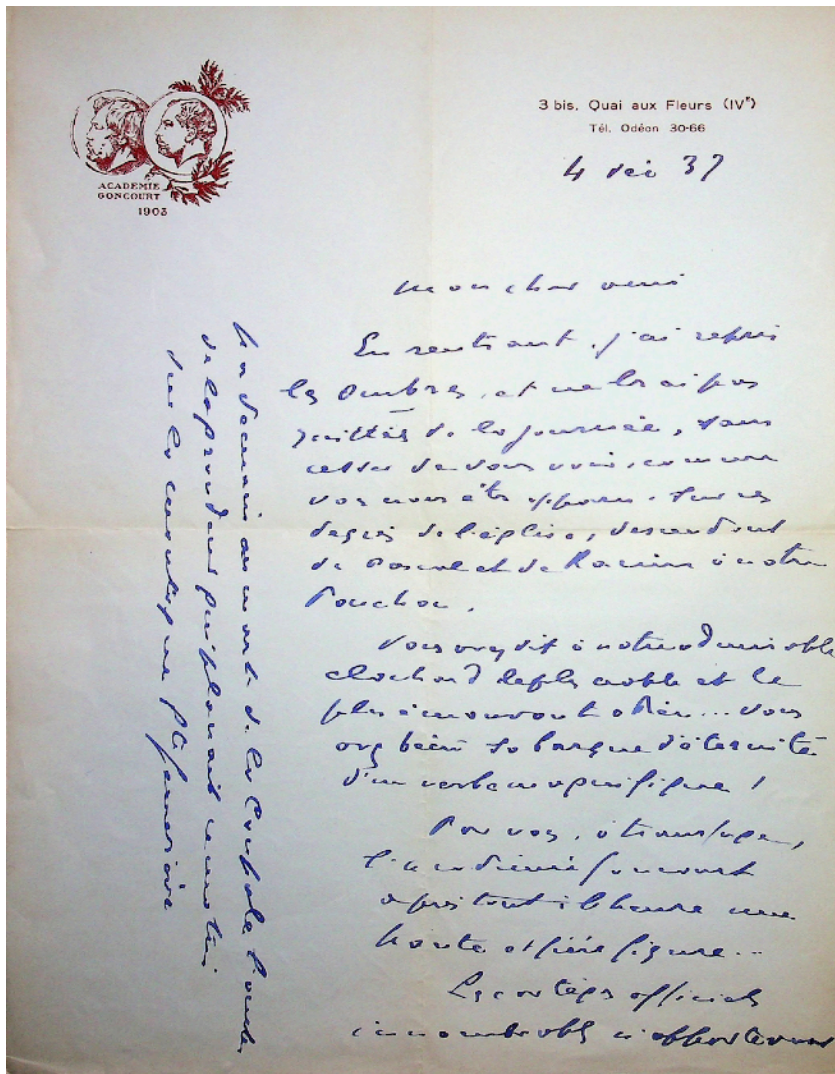 ACADEMIE
GONCOURT
1903
3 bis, Quai aux Fleurs (IVe)
Tél. Odéon 30-66
4 déc 37
Mon cher ami
En rentrant, j'ai repris
les Ombres, et ne les ai pas
quittées de la journée, sans
cesser de vous voir, comme
vous nous êtes apparu, sur les
degrés de l'église, descendant
de Pascal et de Racine à notre
Ponchon.
Vous avez dit à notre admirable
clochard le plus noble et le
plus émouvant adieu... Vous
avez béni sa barque d'éternité
d'un verbe magnifique !
Par vous, ô transfuge,
l'académie Goncourt
a pris tout à l'heure une
haute et fière figure...
Les cortèges officiels
innombrables n'apporteront
de la Coupole l'ombre
de la grandeur qui planait ce matin
sur le cimetière